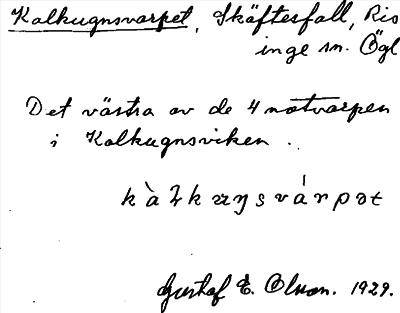 Kalkugnsvarpet, Skäftesfall, Ris
inge sn. Ögl
Det västra av de 4 notvarpen
i Kalkugnsviken.
Gustaf E. Olsson. 1929.